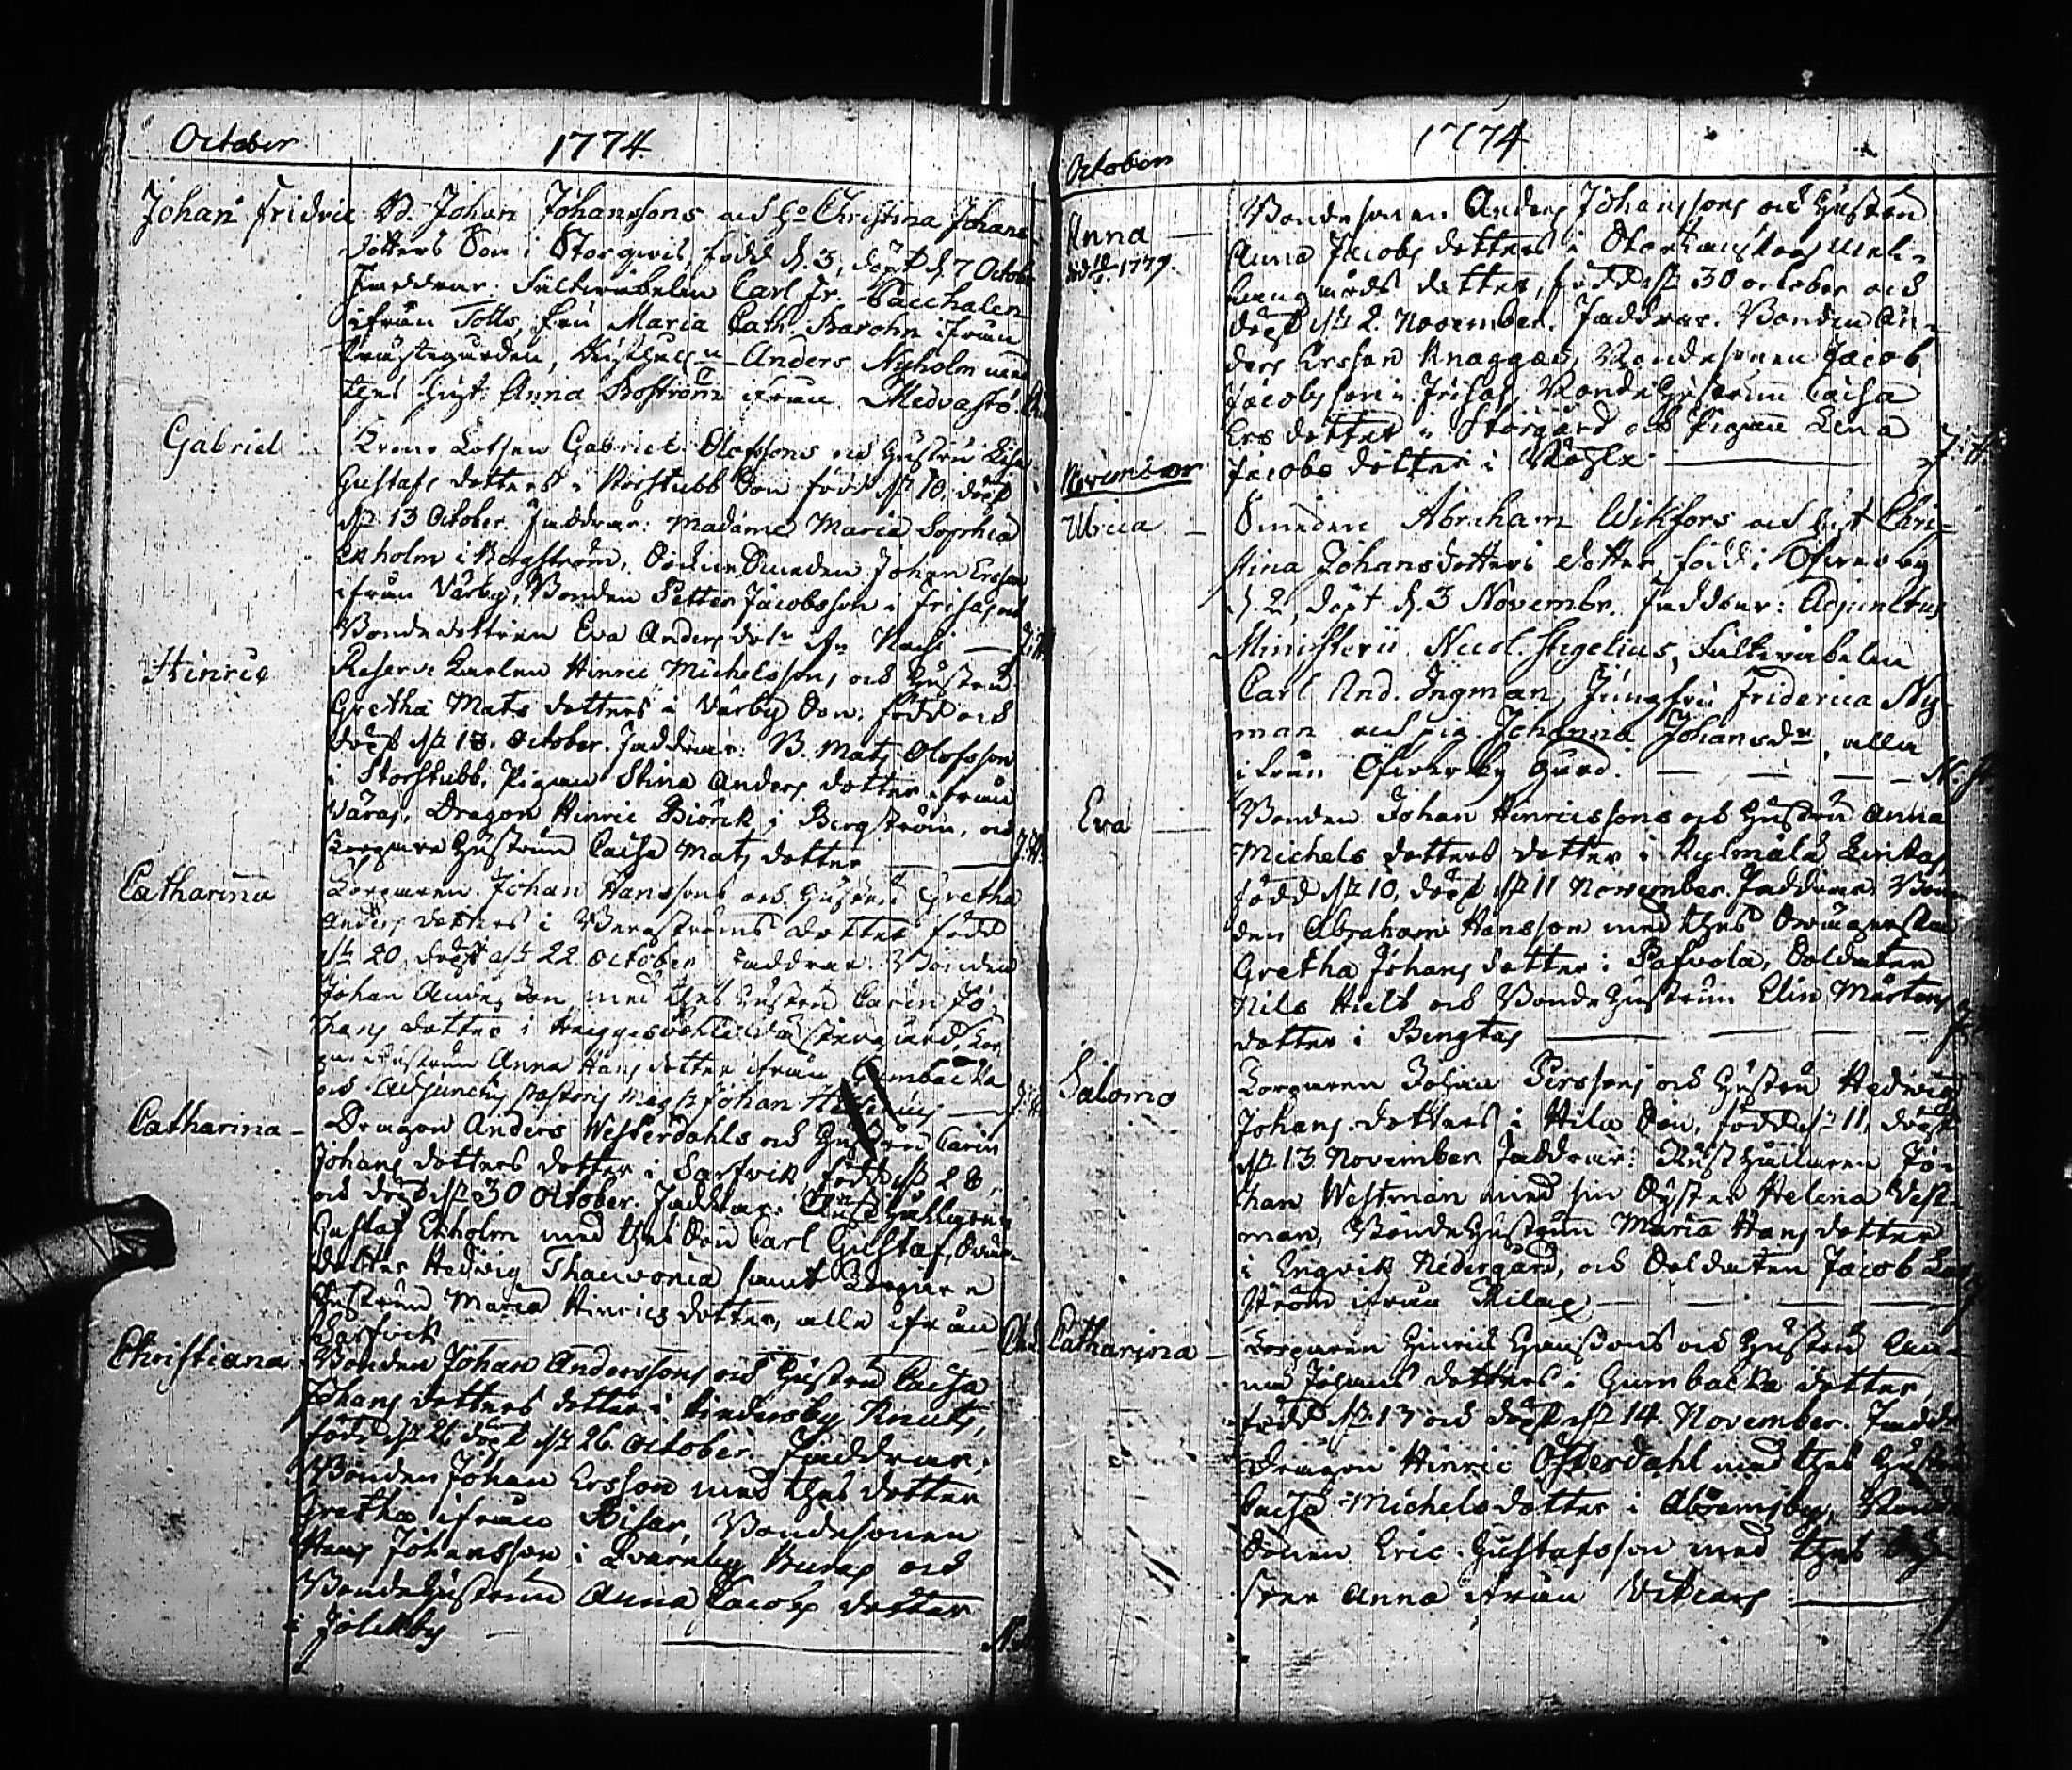 October 1774
Johan Fridric B. Johan Johanssons och H:o Christina Johans
dotters Son i Storqwis, född d. 3, döpt d. 7 Octobr
Faddrar: Fältwäbelen Carl Fr.
ifrån Tolls, Fru Maria Cath. Barohn ifrån
Prästegården, Anders Nyholm med
thes hust: Anna Boström ifrån Medvastö
Gabriel Krono Lotsen Gabriel Olofssons och Hustru Lisa
Gustafs dotters i Storstubb Son född d: 10, döpt
d: 13 October. Faddrar: Madame Maria Sophia
Ekholm i Bergström, Smeden Johan Ersson
ifrån Vårby, Bonden Petter Jacobsson i Frisas och
Bondedottren Eva Anders dotr
Hinric Reserve Karlen Hinric Michelsson, och Hustru
Gretha Mats dotters i Vårby Son, född och
döpt d: 18. October. Faddrar: B. Mats Olofsson
i Storstubb, Pigan Stina Anders dotter ifrån
Dragon Hinric Biörck i Bergström, och
Torpare Hustrun Caisa Mats dotter
Catharina Torparen Johan Hanssons och Hustru Gretha
Anders dotters i Bergströms dotter född
d: 20, döpt d: 22 October Faddrar: Bonden
Johan Andersson med thes Hustru Carin Jo-
hans dotter i Heggesböhle Västergård, Tor
pare Hustrun Anna Hans dotter ifrån Gumbacka
och Adjunctus pastoris Mag:r Johan
Catharina Dragon Anders Westerdahls och Hustru Carin
Johans dotters dotter i Sarfvik, född d: 28,
och döpt d: 30 October. Faddrar: Rusthållaren
Gustaf Ekholm med thes Son Carl Gustaf,
dotter Hedwig Thauvonia samt Torpare
Hustrun Maria Hinrics dotter, alle ifrån
Sarfvik
Christiana Bonden Johan Anderssons och Hustru Caisa
Johans dotters dotter i Hindersby Knuts,
född d: 26 döpt d: 26. October. Faddrar:
Bonden Johan Ersson med thes dotter
Gretha ifrån Bisas, Bondesonen
Hans Johansson i Qvarnby och
Bonde Hustrun Anna Jacobs dotter
i Jolkby
October 1774
Anna Bondesonen Anders Johanssons och Hustru
död 1779. Anna Jacobs dotters i
dotter, född d: 30 october och
döpt d: 2. November. Faddrar. Bonden An-
ders Ersson Knaggas, Bondesonen Jacob
Jacobsson i Frisas, Bonde Hustrun Caisa
Ers dotter i Storgård och Pigan Lena
Jacobs dotter i
November
Ulrica Smeden Abraham Wikfors och hust Chri-
stina Johansdotters dotter, född i Öfwerby
d. 2, döpt d. 3 Novembr. Faddrar: Adjunctus
Ministerii Nicol. Stigelius, Fältwäbelen
Carl And. Ingman, Jungfru Friderica Ny-
man och pig. Johanna Johansdr, alla
ifrån Öfwerby Gård.
Eva Bonden Johan Hinricssons och Hustru Anna
Michels dotters dotter i Kylmälä
född d: 10, döpt d: 11 November. Faddrar: Bon-
den Abraham Hansson med thes
Gretha Johans dotter i Pafvola, Soldaten
Nils Hielt och Bonde Hustrun Elin Mårtens
dotter i Bengtas
Salomo Torparen Johan Perssons och Hustru Hedwig
Johans dotters i Hila Son, född d: 11, döpt
d: 13 November Faddrar: Rusthållaren Jo-
han Westman med sin Syster Helena West-
man, Bonde Hustrun Maria Hans dotter
i Engvik Nedergård, och Soldaten Jacob
ström ifrån
Catharina Torparen Hinric Hanssons och Hustru An-
na Johans dotters i Gumbacka dotter,
född d: 13 och döpt d: 14. November. Faddr
Dragon Hinric Österdahl med thes Hustru
Caisa Michels dotter i Abramsby, Bonde
Sonen Eric Gustafsson med thes Sy-
ster Anna ifrån